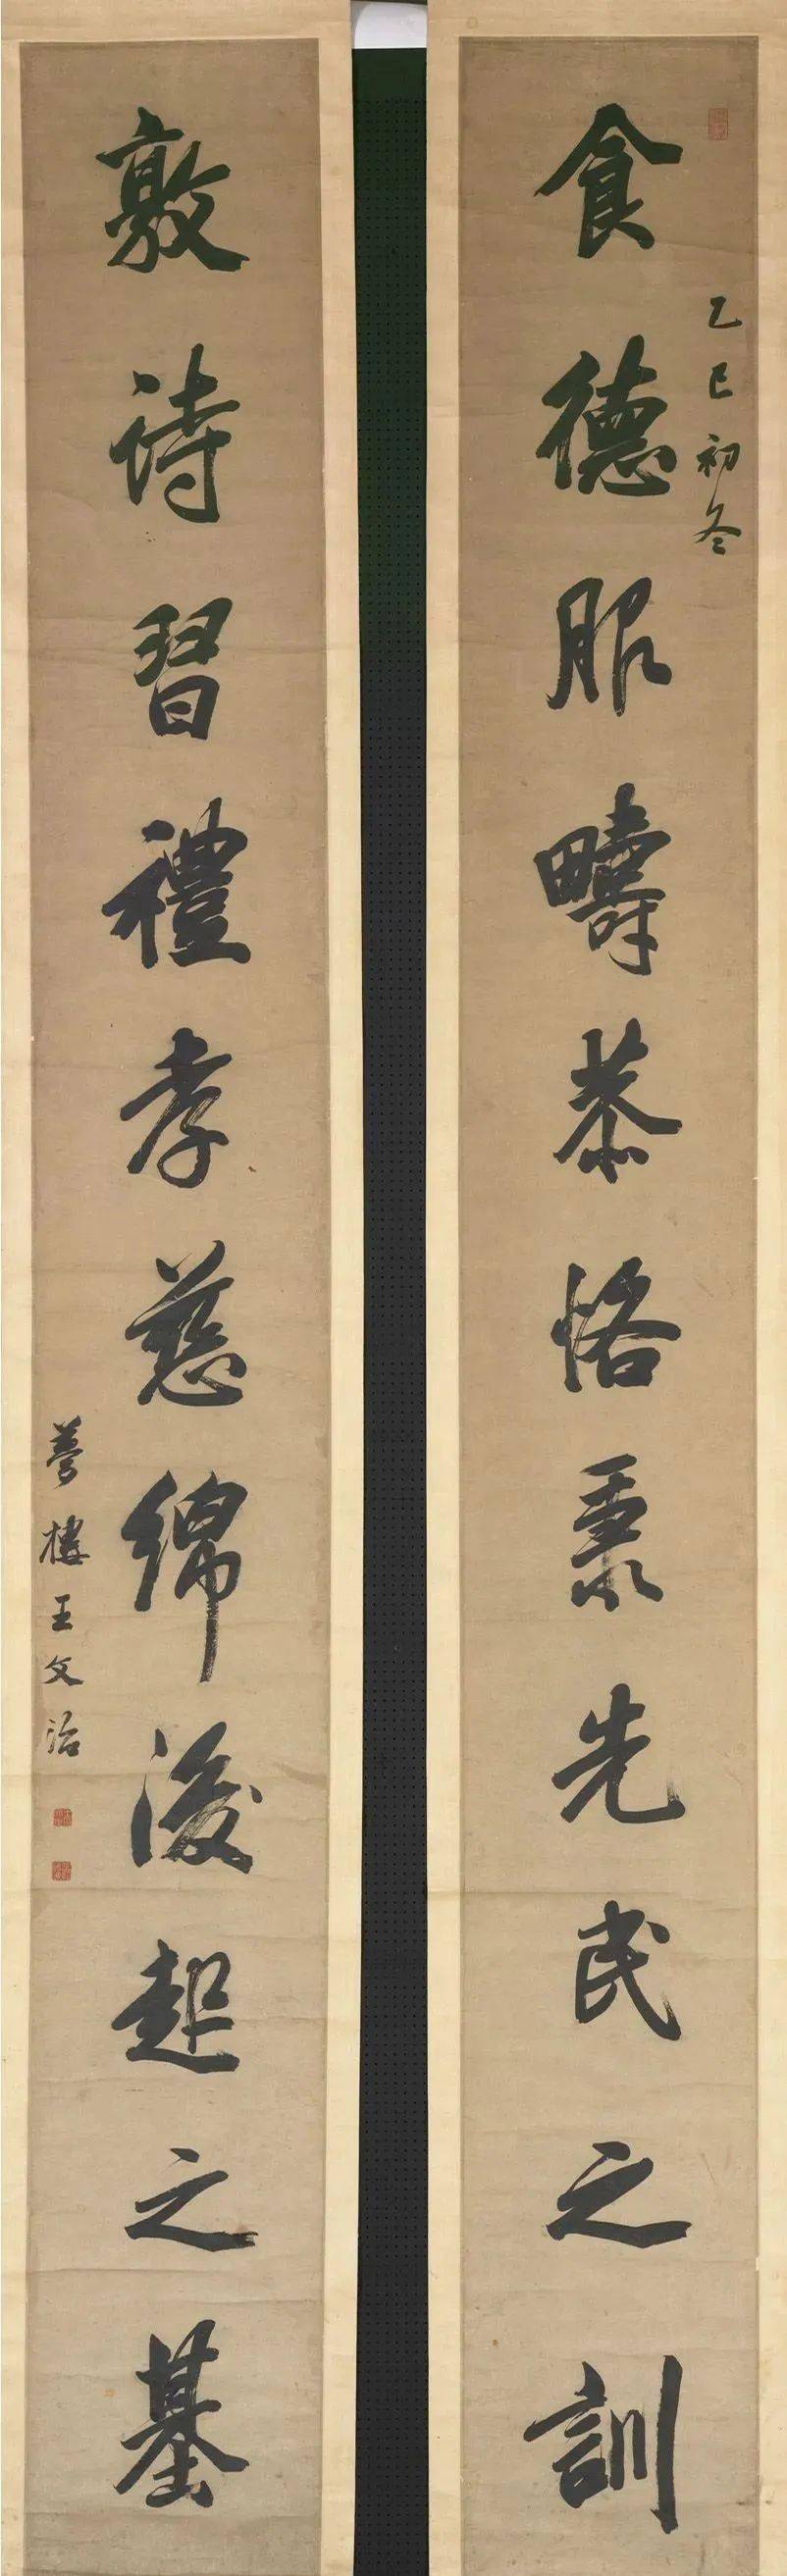 乙巳初冬
食德服疇恭恪秉先民之訓
敦詩習禮孝慈綿後起之基
夢樓王文治